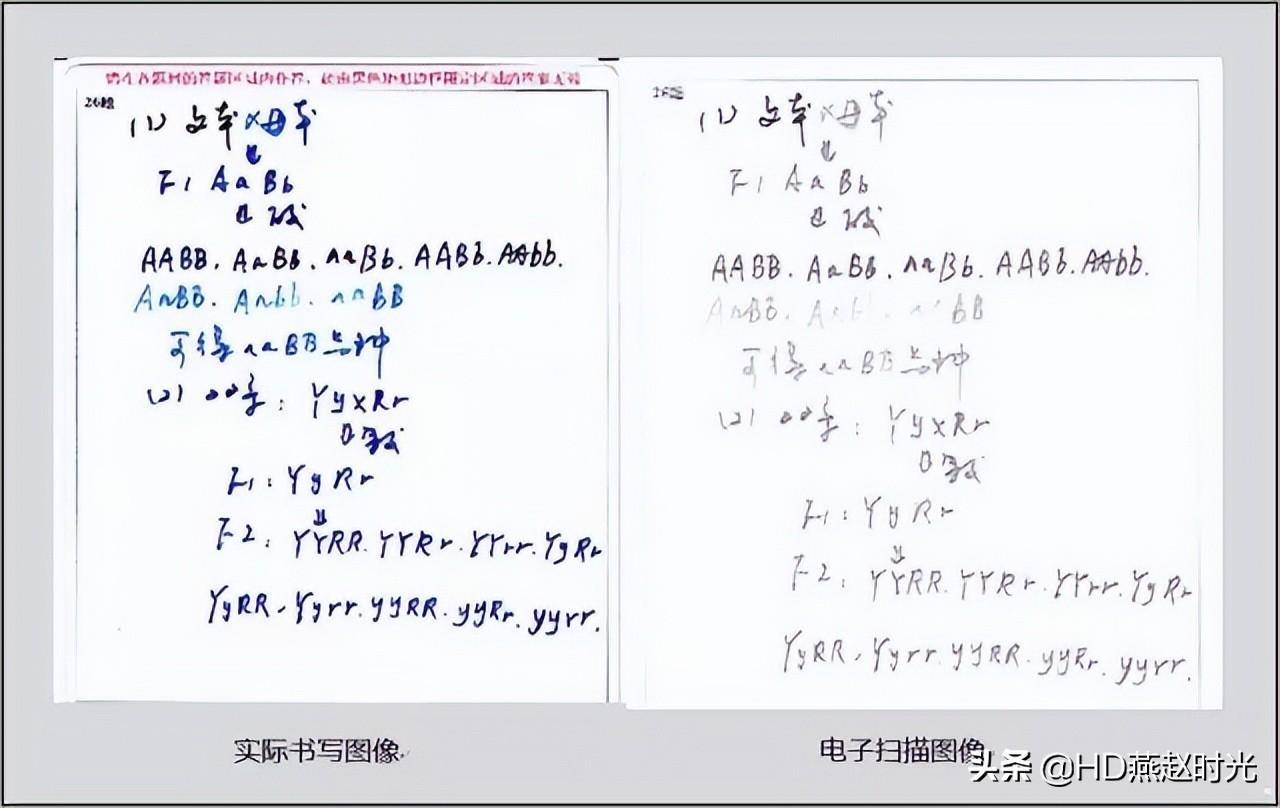 请在各题目的答题区域内作答,超出黑色矩形边框限定区域的答案无效
26题
(1) 父本×母本
↓
F1 AaBb
↓ 减
AABB. AaBB. aaBb. AABb. AAbb.
AaBB. Aabb. aaBB
可得aaBB品种
(2) : YyxRr
↓
F1: YyRr
↓
F2: YYRR. YYRr. YYrr. YyRr
YyRR. Yyrr. yyRR. yyRr. yyrr.
实际书写图像
26题
(1) 父本×母本
↓
F1 AaBb
↓ 减
AABB. AaBB. aaBb. AABb. AAbb.
AaBB. Aabb. aaBB
可得aaBB品种
(2) : YyxRr
↓
F1: YyRr
↓
F2: YYRR. YYRr. YYrr. YyRr
YyRR. Yyrr. yyRR. yyRr. yyrr.
电子扫描图像
头条 @HD燕赵时光